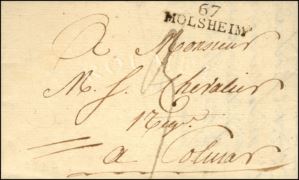 67
MOLSHEIM
A Monsieur
M. f. Chevalier
Negt.
a Colmar